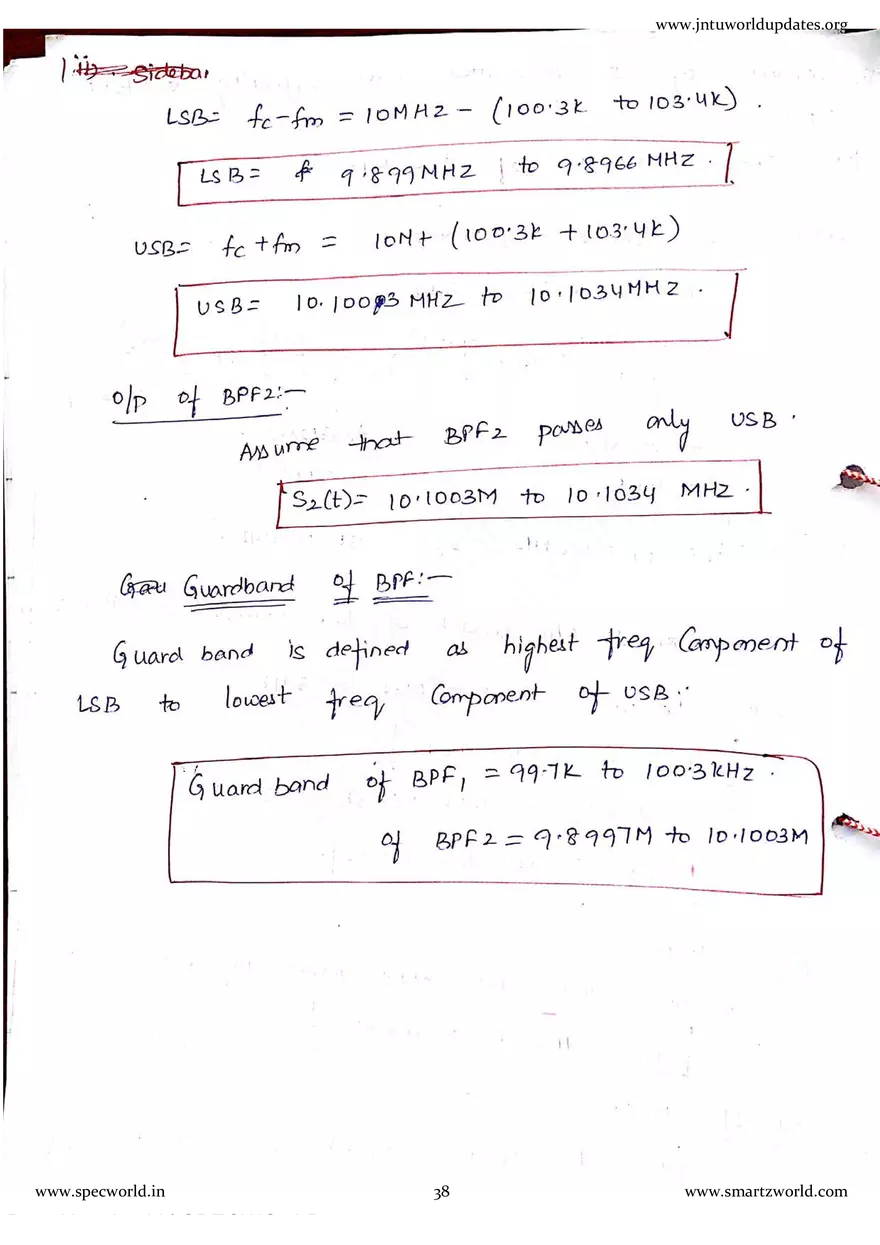 www.jntuworldupdates.org
LSB= fc-fm = 10MHZ - (100.3k to 103.4k).
LSB= 9.899MHZ to 9.8966 MHZ.
USB= fc+fm = 10M+ (100.3k + 103.4k)
USB= 10.1003 MHZ to 10.1034MHZ.
O/P of BPF2:-
Assume that BPF2 passes only USB.
S2(t)= 10.1003M to 10.1034 MHZ.
Guardband of BPF:-
Guard band is defined as highest freq Component of
LSB to lowest freq Component of USB.
Guard band of BPF1 = 99.7K to 100.3kHZ.
of BPF2 = 9.8997M to 10.1003M
www.specworld.in 38 www.smartzworld.com